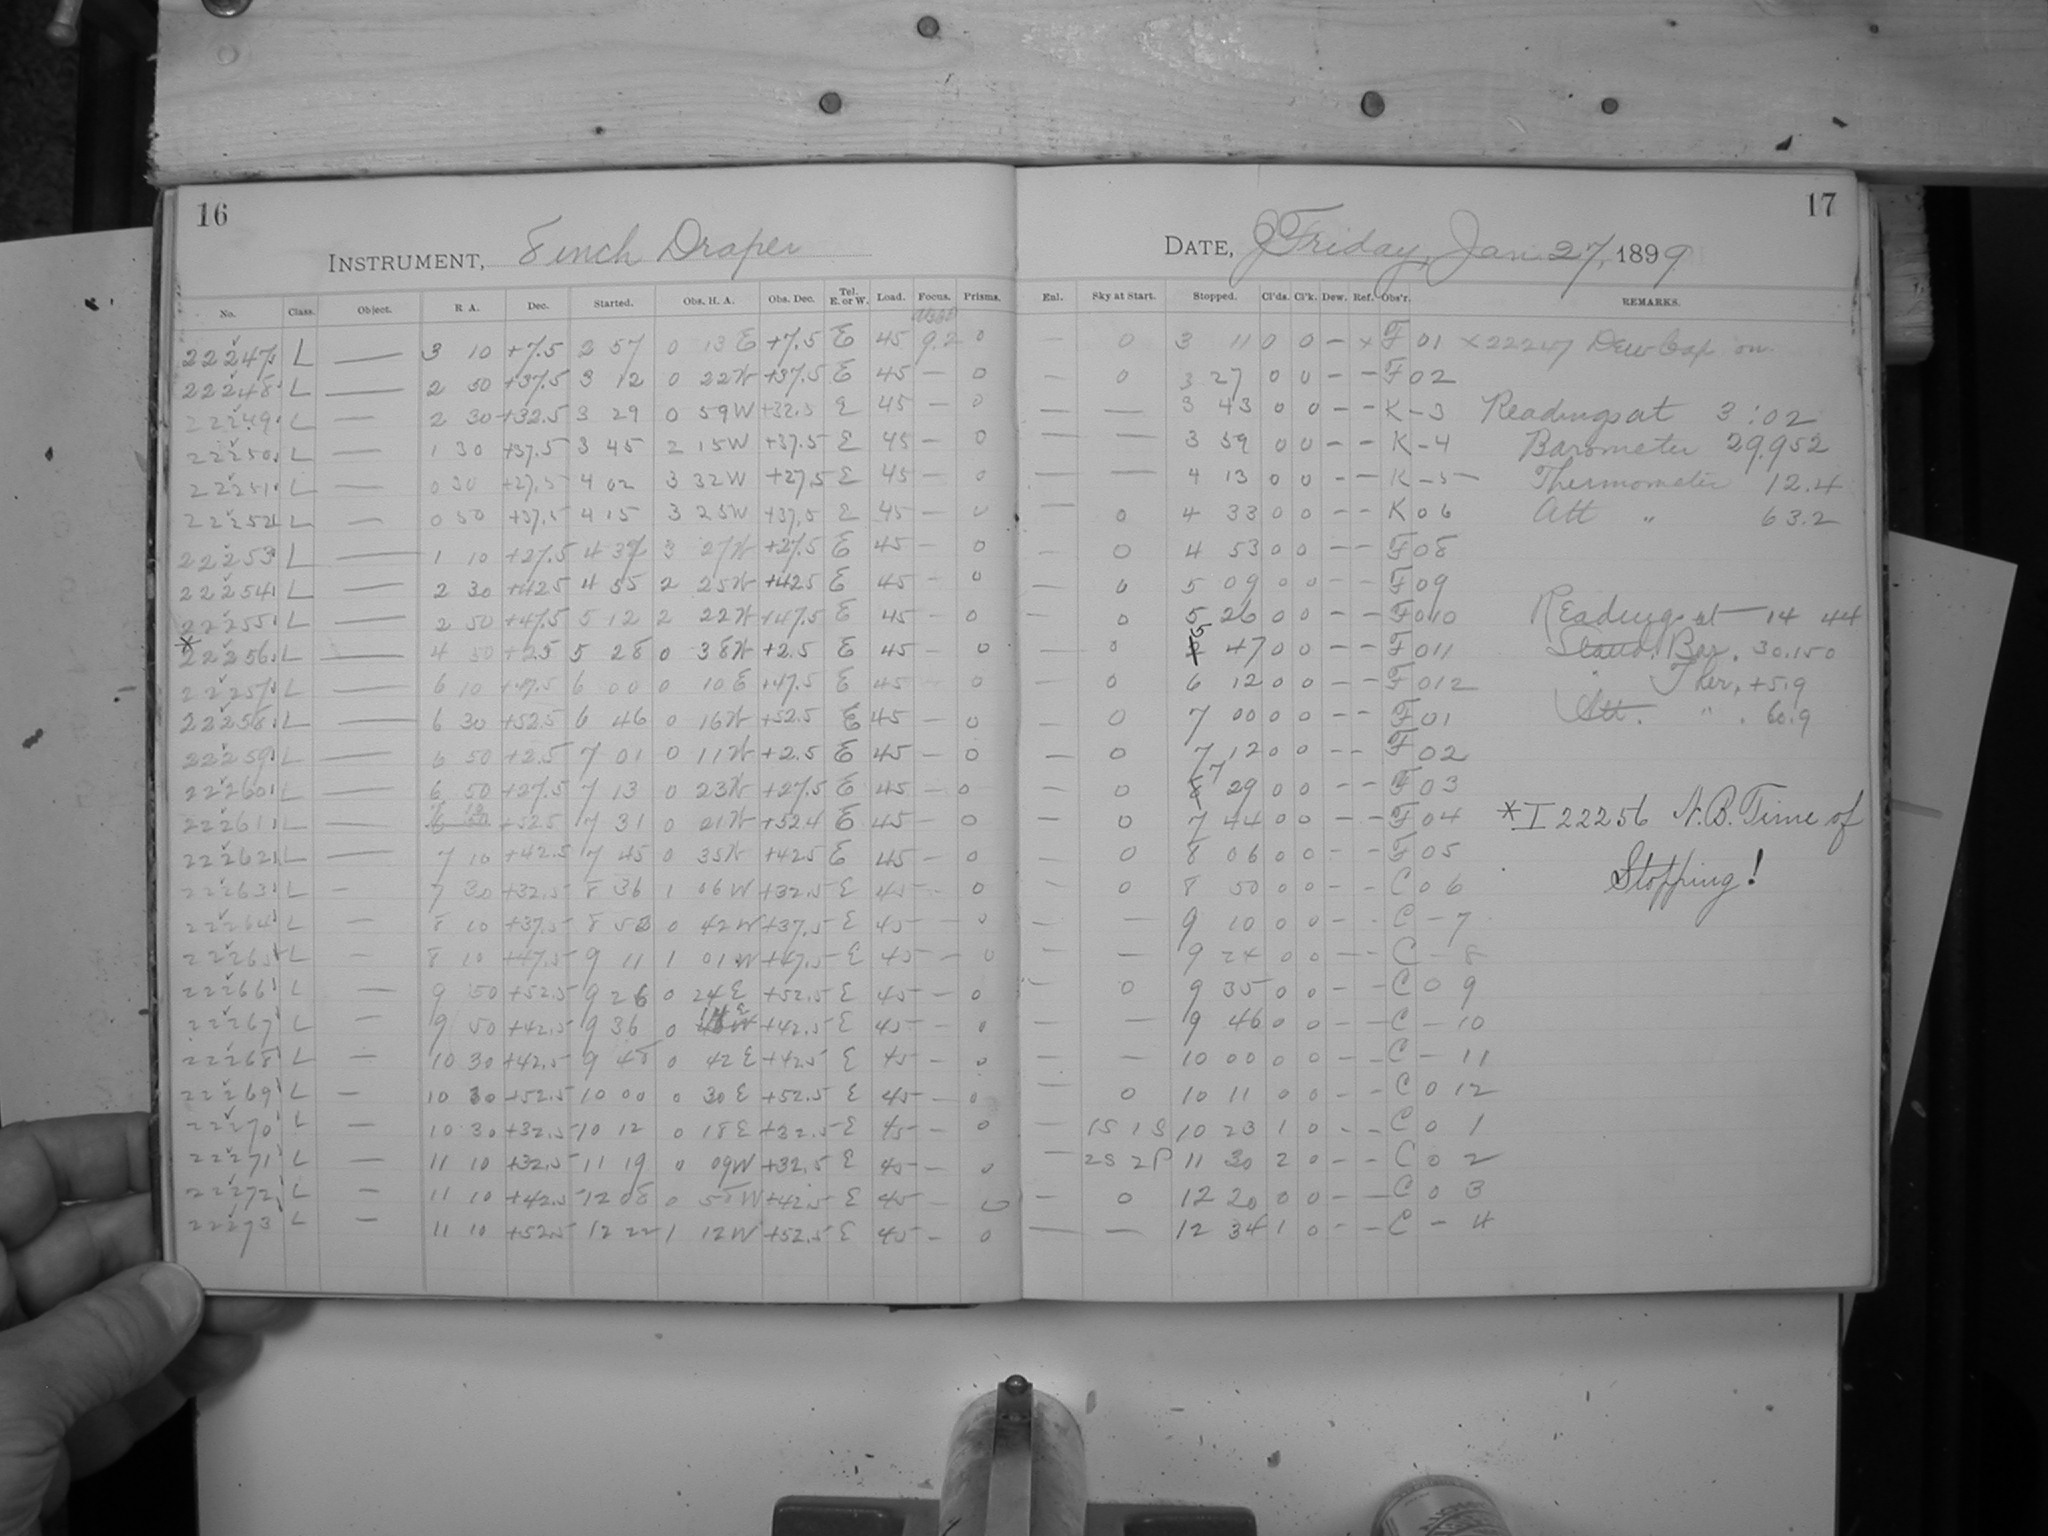 16
INSTRUMENT, 8 inch Draper
No. Class. Object. R A. Dec. Started. Obs. H. A. Obs. Dec. Tel. E. or W. Load. Focus. Prisms.
22247 L — 3 10 +7.5 2 57 0 13 E +7.5 E 45 9.2 0
22248 L — 2 50 +37.5 3 12 0 22W +37.5 E 45 — 0
22249 L — 2 30 +32.5 3 29 0 59W +32.5 E 45 — 0
22250 L — 1 30 +37.5 3 45 2 15W +37.5 E 45 — 0
22251 L — 0 30 +27.5 4 02 3 32W +27.5 E 45 — 0
22252 L — 0 50 +37.5 4 15 3 25W +37.5 E 45 — 0
22253 L — 1 10 +27.5 4 37 3 27W +27.5 E 45 — 0
22254 L — 2 30 +42.5 4 55 2 25W +42.5 E 45 — 0
22255 L — 2 50 +47.5 5 12 2 22W +47.5 E 45 — 0
*22256 L — 4 50 +2.5 5 28 0 38W +2.5 E 45 — 0
22257 L — 6 10 +47.5 6 00 0 10 E +47.5 E 45 — 0
22258 L — 6 30 +52.5 6 46 0 16W +52.5 E 45 — 0
22259 L — 6 50 +2.5 7 01 0 11W +2.5 E 45 — 0
22260 L — 6 50 +27.5 7 13 0 23W +27.5 E 45 — 0
22261 L — 7 10 +52.5 7 31 0 21W +52.4 E 45 — 0
22262 L — 7 10 +42.5 7 45 0 35W +42.5 E 45 — 0
22263 L — 7 30 +32.5 8 36 1 06 W +32.5 E 45 — 0
22264 L — 8 10 +37.5 8 52 0 42W +37.5 E 45 — 0
22265 L — 8 10 +47.5 9 11 1 01 W +47.5 E 45 — 0
22266 L — 9 50 +52.5 9 26 0 24 E +52.5 E 45 — 0
22267 L — 9 50 +42.5 9 36 0 14 E +42.5 E 45 — 0
22268 L — 10 30 +42.5 9 48 0 42 E +42.5 E 45 — 0
22269 L — 10 30 +52.5 10 00 0 30 E +52.5 E 45 — 0
22270 L — 10 30 +32.5 10 12 0 18 E +32.5 E 45 — 0
22271 L — 11 10 +32.5 11 19 0 09W +32.5 E 45 — 0
22272 L — 11 10 +42.5 12 08 0 58 W +42.5 E 45 — 0
22273 L — 11 10 +52.5 12 22 1 12W +52.5 E 45 — 0
17
DATE, Friday, Jan. 27, 1899
Enl. Sky at Start. Stopped. Cl'ds. Cl'k. Dew. Ref. Obs'r. REMARKS.
— 0 3 11 0 0 — x F 01 x 22247 Dew Cap on.
— 0 3 27 0 0 — — F 02
— — 3 43 0 0 — — K — 3 Readings at 3:02
— — 3 59 0 0 — — K — 4 Barometer 29.952
— — 4 13 0 0 — — K — 5 Thermometer 12.4
— 0 4 33 0 0 — — K 0 6 Att " 63.2
— 0 4 53 0 0 — — F 08
— 0 5 09 0 0 — — F 09
— 0 5 26 0 0 — — F 010 Readings at 14 44
— 0 5 47 0 0 — — F 011 Stand. Bar. 30.150
— 0 6 12 0 0 — — F 012 Ther. +5.9
— 0 7 00 0 0 — — F 01 Att. " . 60.9
— 0 7 12 0 0 — — F 02
— 0 7 29 0 0 — — F 03
— 0 7 44 0 0 — — F 04 *I 22256 N.B. Time of
— 0 8 06 0 0 — — F 05 Stopping!
— 0 8 50 0 0 — — C 0 6
— — 9 10 0 0 — — C — 7
— — 9 24 0 0 — — C — 8
— 0 9 35 0 0 — — C 0 9
— — 9 46 0 0 — — C — 10
— — 10 00 0 0 — — C — 11
— 0 10 11 0 0 — — C 0 12
— 1S 1S 10 23 1 0 — — C 0 1
— 2S 2P 11 30 2 0 — — C 0 2
— 0 12 20 0 0 — — C 0 3
— — 12 34 1 0 — — C — 4